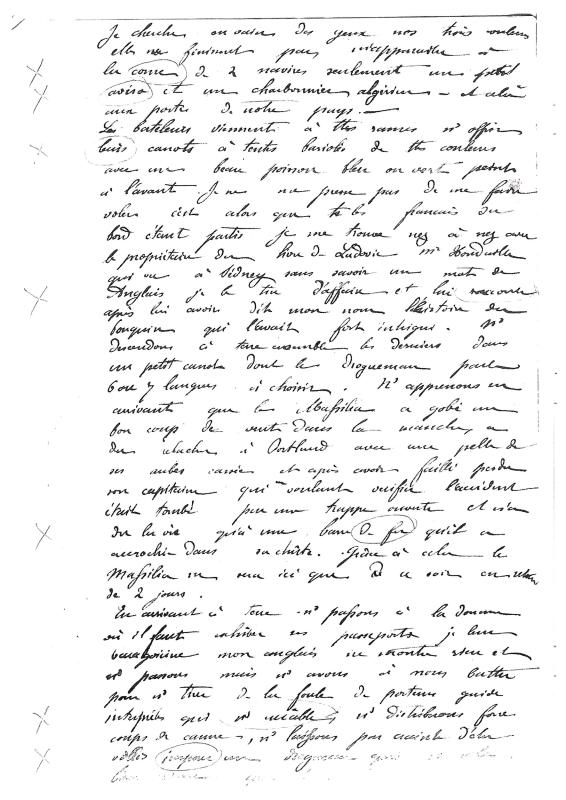 Je cherche en vain des yeux nos trois couleurs
elles ne finissent pas
la corne de 2 navires seulement un petit
aviso et un charbonnier algérien – et cela
aux portes de notre pays. –
Les bateliers viennent à ttes rames ns offrir
leurs canots à tentes bariolés de ttes couleurs
avec un beau poisson bleu ou vert peint
à l'avant. Je ne me presse pas de me faire
voler c'est alors que ts les français du
bord étant partis je me trouve nez à nez avec
le propriétaire du livre de Ludovic Mr
qui va à Sidney sans savoir un mot de
Anglais je le tire d'affaire et lui raconte
après lui avoir dit mon nom l'histoire du
bouquin qui l'avait fort intrigué. Ns
descendons à terre ensemble les derniers dans
un petit canot dont le drogueman parle
6 ou 7 langues à choisir. Ns apprenons en
arrivant que le Massilia a gobé un
bon coup de vent dans la manche, a
du relacher à Portland avec une pelle de
ses aubes cassée et après avoir failli perdre
son capitaine qui voulant vérifier l'accident
était tombé par une trappe ouverte et n'a
du la vie qu'à une barre de fer qu'il a
accrochée dans sa chûte. Grâce à cela le
Massilia ne sera ici que ce soir en retard
de 2 jours.
En arrivant à terre ns passons à la douane
où il faut exhiber ses passeports je leur
baragouine mon anglais ne montre rien et
ns passons mais ns avons à nous battre
pour ns tirer de la foule de porteurs guide
interprètes qui ns ns distribuons force
coups de canne, ns laissons pas
un drogueman qui